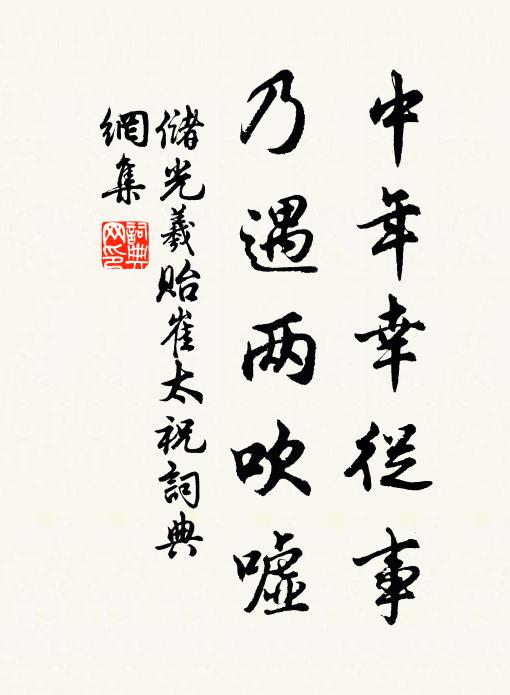 中年幸從事
乃遇两吹噓
儲光羲貽崔太祝詞典
網集
詞典网印